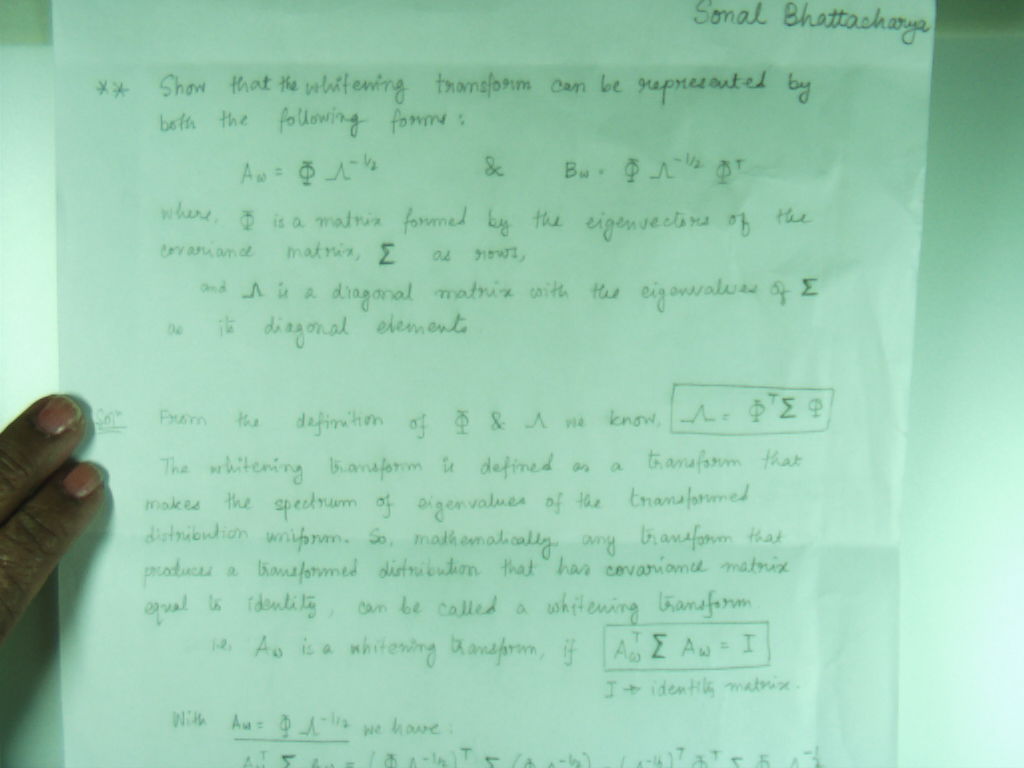 Sonal Bhattacharya
** Show that the whitening transform can be represented by
both the following forms:
A_w = Φ Λ^{-1/2} & B_w = Φ Λ^{-1/2} Φ^T
where, Φ is a matrix formed by the eigenvectors of the
covariance matrix, Σ as rows,
and Λ is a diagonal matrix with the eigenvalues of Σ
as its diagonal elements
Solⁿ From the definition of Φ & Λ we know, Λ = Φ^T Σ Φ
The whitening transform is defined as a transform that
makes the spectrum of eigenvalues of the transformed
distribution uniform. So, mathematically any transform that
produces a transformed distribution that has covariance matrix
equal to identity, can be called a whitening transform
i.e. A_w is a whitening transform, if A_w^T Σ A_w = I
I → identity matrix.
With A_w = Φ Λ^{-1/2} we have:
A_w^T Σ A_w = (Φ Λ^{-1/2})^T Σ (Φ Λ^{-1/2}) = (Λ^{-1/2})^T Φ^T Σ Φ Λ^{-1/2}